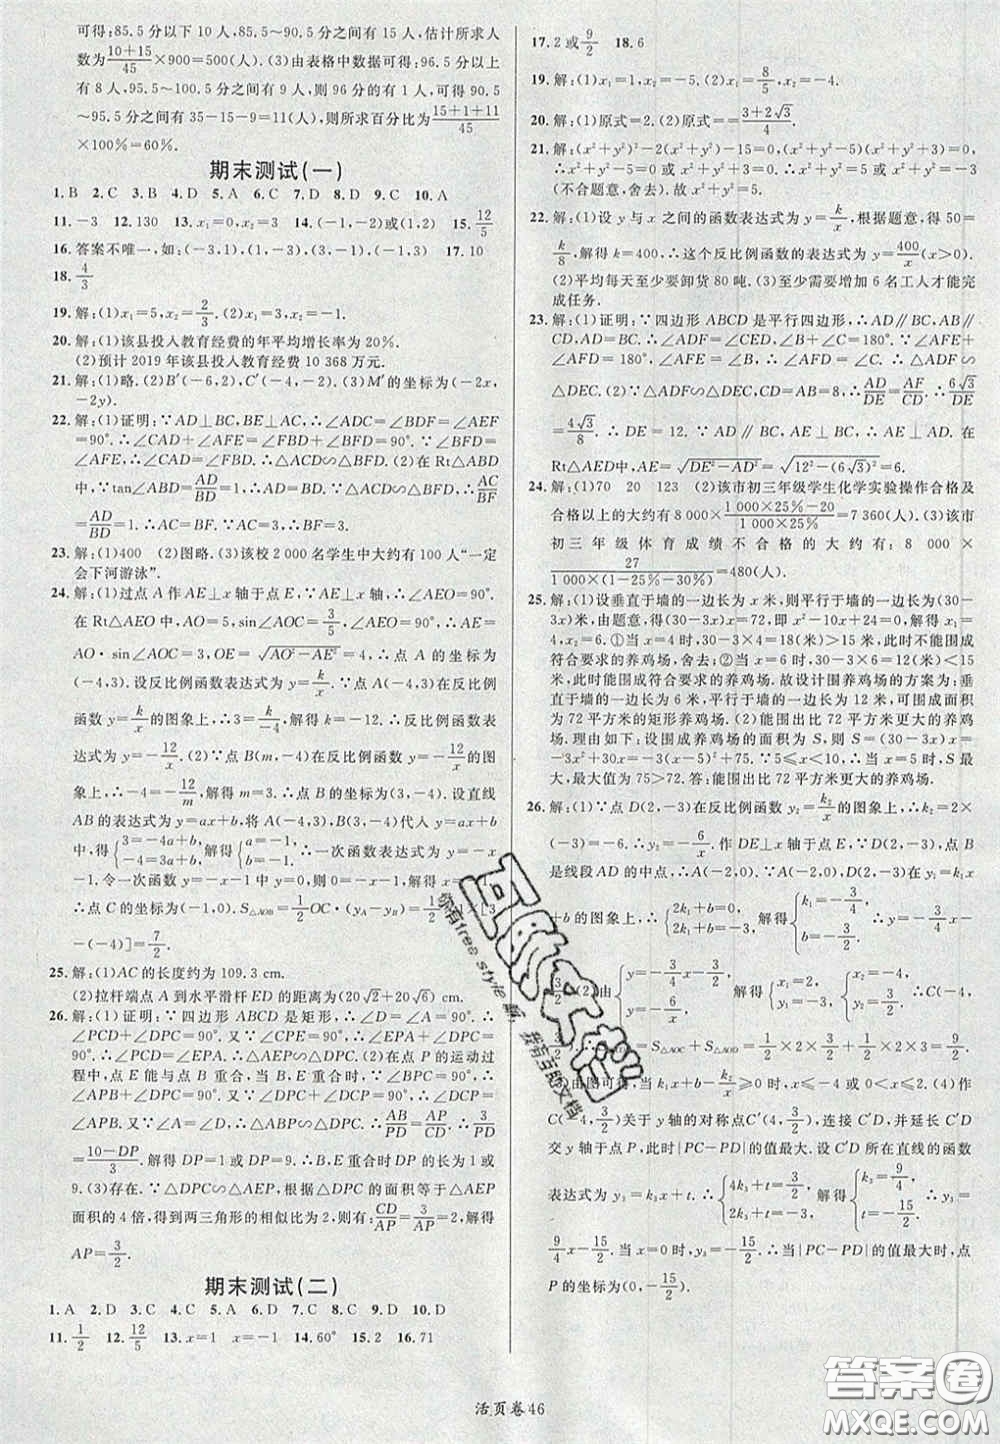 可得:85.5分以下10人,85.5~90.5之间有15人,估计所求人
数为(10+15)/45×900=500(人).(3)由表格中数据可得:96.5分
以下有36人,95.5~100.5分之间有9人,则96分的有1人,可得90.5
~95.5分之间有35-15-9=11(人),则所求百分比为(15+1+11)/45
×100%=60%.
期末测试(一)
1.B 2.C 3.B 4.D 5.A 6.C 7.D 8.D 9.C 10.A
11.-3 12.130 13.x₁=0,x₂=3 14.(-1,-2)或(1,2) 15.12/5
16.答案不唯一,如:(-3,1),(1,-3),(3,-1),(-1,3) 17.10
18.4/3
19.解:(1)x₁=5,x₂=2/3. (2)x₁=3,x₂=-1.
20.解:(1)该县投入教育经费的年平均增长率为20%.
(2)预计2019年该县投入教育经费10 368万元.
21.解:(1)略.(2)B′(-6,2),C′(-4,-2).(3)M′的坐标为(-2x,
-2y).
22.解:(1)证明:∵AD⊥BC,BE⊥AC,∴∠ADC=∠BDF=∠AEF
=90°.∴∠CAD+∠AFE=∠FBD+∠BFD=90°.∵∠BFD=
∠AFE,∴∠CAD=∠FBD.∴△ADC∽△BDF.(2)在Rt△ABD
中,∵tan∠ABD=AD/BD=1.∵△ADC∽△BDF,∴AC/BF=
AD/BD=1.∴AC=BF.∵AC=3,∴BF=3.
23.解:(1)400 (2)图略.(3)该校2 000名学生中大约有100人“一定
会下河游泳”.
24.解:(1)过点A作AE⊥x轴于点E,∵AE⊥x轴,∴∠AEO=90°.
在Rt△AEO中,AO=5,sin∠AOC=3/5,∠AEO=90°,∴AE=
AO·sin∠AOC=3,OE=√(AO²-AE²)=4.∴点A的坐标为
(-4,3).设反比例函数表达式为y=k/x.∵点A(-4,3)在反比例
函数y=k/x的图象上,∴3=k/-4,解得k=-12.∴反比例函数表
达式为y=-12/x.(2)∵点B(m,-4)在反比例函数y=-12/x的图
象上,∴-4=-12/m,解得m=3.∴点B的坐标为(3,-4).设直线
AB的表达式为y=ax+b,将A(-4,3),B(3,-4)代入y=ax+b
中,得{3=-4a+b, -4=3a+b,解得{a=-1, b=-1.∴一次函数表达式为y=-x
-1.令一次函数y=-x-1中y=0,则0=-x-1,解得x=-1.
∴点C的坐标为(-1,0).S△AOB=1/2OC·(yA-yB)=1/2×1×[3
-(-4)]=7/2.
25.解:(1)AC的长度约为109.3 cm.
(2)拉杆端点A到水平滑杆ED的距离为(20√2+20√6)cm.
26.解:(1)证明:∵四边形ABCD是矩形,∴∠D=∠A=90°.∴
∠PCD+∠DPC=90°.又∵∠CPE=90°,∴∠EPA+∠DPC=
90°.∴∠PCD=∠EPA.∴△AEP∽△DPC.(2)在点P的运动过
程中,点E能与点B重合,当B,E重合时,∵∠BPC=90°,∴
∠APB+∠DPC=90°.∵∠DPC+∠DCP=90°,∴∠DCP=
∠APB.又∵∠A=∠D,∴△ABP∽△DPC.∴AB/PD=AP/CD,即4/PD
=(10-DP)/3.解得DP=1或9.∴B,E重合时DP的长为1或
9.(3)存在.∵△DPC∽△AEP,根据△DPC的面积等于△AEP
面积的4倍,得到两三角形的相似比为2,则有:CD/AP=2,即3/AP=2,解得
AP=3/2.
期末测试(二)
1.A 2.D 3.C 4.C 5.A 6.D 7.C 8.D 9.D 10.D
11.1/2 12.12/5 13.x=1 x=-1 14.60° 15.2 16.71
17.2或9/2 18.6
19.解:(1)x₁=1,x₂=-5. (2)x₁=8/5,x₂=-4.
20.解:(1)原式=2.(2)原式=(3+2√3)/4.
21.解:(x²+y²)²-2(x²+y²)-15=0,(x²+y²-5)(x²+y²+3)=0,
∴x²+y²-5=0或x²+y²+3=0.∴x²+y²=5或x²+y²=-3
(不合题意,舍去).故x²+y²=5.
22.解:(1)设y与x之间的函数表达式为y=k/x,根据题意,得50=
k/8,解得k=400.∴这个反比例函数的表达式为y=400/x(x>0).
(2)平均每天至少要卸货80吨.(3)至少需要增加6名工人才能完
成任务.
23.解:(1)证明:∵四边形ABCD是平行四边形,∴AD∥BC,AB∥
CD.∴∠ADF=∠CED,∠B+∠C=180°.∵∠AFE+
∠AFD=180°,∠AFE=∠B,∴∠AFD=∠C.∴△ADF
∽△DEC.(2)∵△ADF∽△DEC,CD=8,∴AD/DE=AF/CD.∴6√3/DE=
4√3/8.∴DE=12.∵AD∥BC,AE⊥BC,∴AE⊥AD.在
Rt△AED中,AE=√(DE²-AD²)=√(12²-(6√3)²)=6.
24.解:(1)70 20 123 (2)该市初三年级学生化学实验操作合格及
合格以上的大约有8 000×(1 000×25%-20)/(1 000×25%)=7 360(人).(3)该市
初三年级体育成绩不合格的大约有:8 000×
27/(1 000×(1-25%-30%))=480(人).
25.解:(1)设垂直于墙的一边长为x米,则平行于墙的一边长为(30-
3x)米.由题意,得(30-3x)x=72,即x²-10x+24=0.解得x₁=
4,x₂=6.①当x=4时,30-3×4=18(米)>15米,此时不能围成
符合要求的养鸡场.②当x=6时,30-3×6=12(米)<15
米,此时能围成符合要求的养鸡场.故设计围养鸡场的方案为:垂
直于墙的一边长为6米,平行于墙的一边长为12米,可围成面积
为72平方米的矩形养鸡场.(2)能围出比72平方米更大的养鸡
场.理由如下:设围成养鸡场的面积为S,则S=(30-3x)x=
-3x²+30x=-3(x-5)²+75.∵5≤x<10,∴当x=5时,S最
大,最大值为75>72.答:能围出比72平方米更大的养鸡场.
26.解:(1)∵点D(2,-3)在反比例函数y₂=k₂/x的图象上,∴k₂=2×
(-3)=-6.∴y₂=-6/x.作DE⊥x轴于点E.∵D(2,-3),点B
是线段AD的中点,∴A(-2,0).∵A(-2,0),D(2,-3)在y₁=k₁x
+b的图象上,∴{-2k₁+b=0, 2k₁+b=-3,解得{k₁=-3/4, b=-3/2.∴y₁=-3/4x
-3/2.(2)由{y=-3/4x-3/2, y=-6/x,解得{x₁=2, y₁=-3, {x₂=-4, y₂=3/2.∴C(-4,
3/2).∴S△COD=S△AOC+S△AOD=1/2×2×3/2+1/2×2×3=9/2.
(3)由图可得,当k₁x+b-k₂/x≥0时,x≤-4或0<x≤2.(4)作
C(-4,3/2)关于y轴的对称点C′(4,3/2),连接C′D,并延长C′D
交y轴于点P,此时|PC-PD|的值最大.设C′D所在直线的函数
表达式为y₃=k₃x+t.∴{4k₃+t=3/2, 2k₃+t=-3,解得{k₃=9/4, t=-15/2.∴y₃=
9/4x-15/2.∴当x=0时,y₃=-15/2.∴当|PC-PD|的值最大时,点
P的坐标为(0,-15/2).
活页卷46
互助文档
你有free style吗,
我有互助文档
答案圈
MXQE.COM